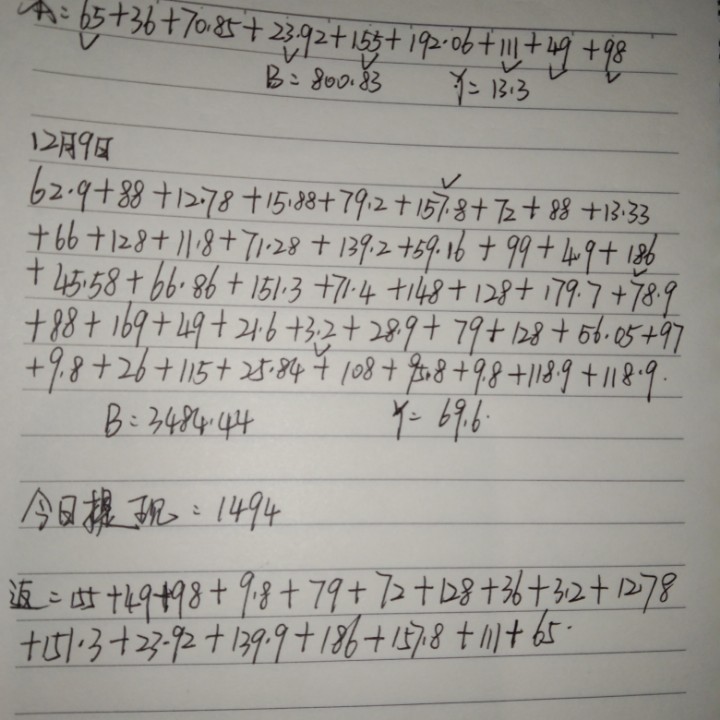 本=65+36+70.85+23.92+155+192.06+111+49+98
B=800.83 Y=13.3
12月9日
62.9+88+12.78+15.88+79.2+157.8+72+88+13.33
+66+128+11.8+71.28+139.2+59.16+99+4.9+186
+45.58+66.86+151.3+71.4+148+128+179.7+78.9
+88+169+49+21.6+3.2+28.9+79+128+56.05+97
+9.8+26+115+25.84+108+95.8+9.8+118.9+118.9.
B=3484.44 Y=69.6.
今日提现=1494
返=155+49+98+9.8+79+72+128+36+3.2+12.78
+151.3+23.92+139.9+186+157.8+111+65.